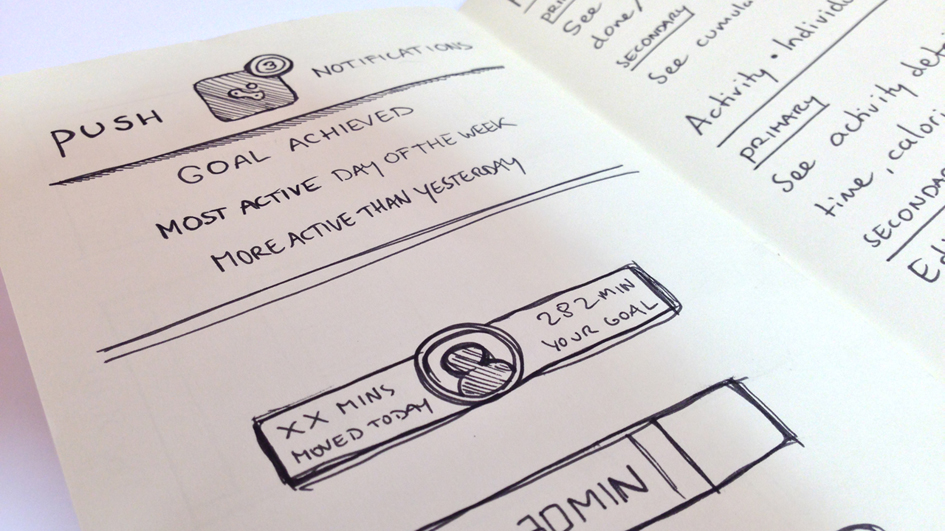 PUSH 3 NOTIFICATIONS
GOAL ACHIEVED
MOST ACTIVE DAY OF THE WEEK
MORE ACTIVE THAN YESTERDAY
XX MINS
MOVED TODAY
282 MIN
YOUR GOAL
ADMIN
See
done/
SECONDARY
See cumula
Activity • Individ
PRIMARY
See activity det
time, calori
SECONDAR
Ed